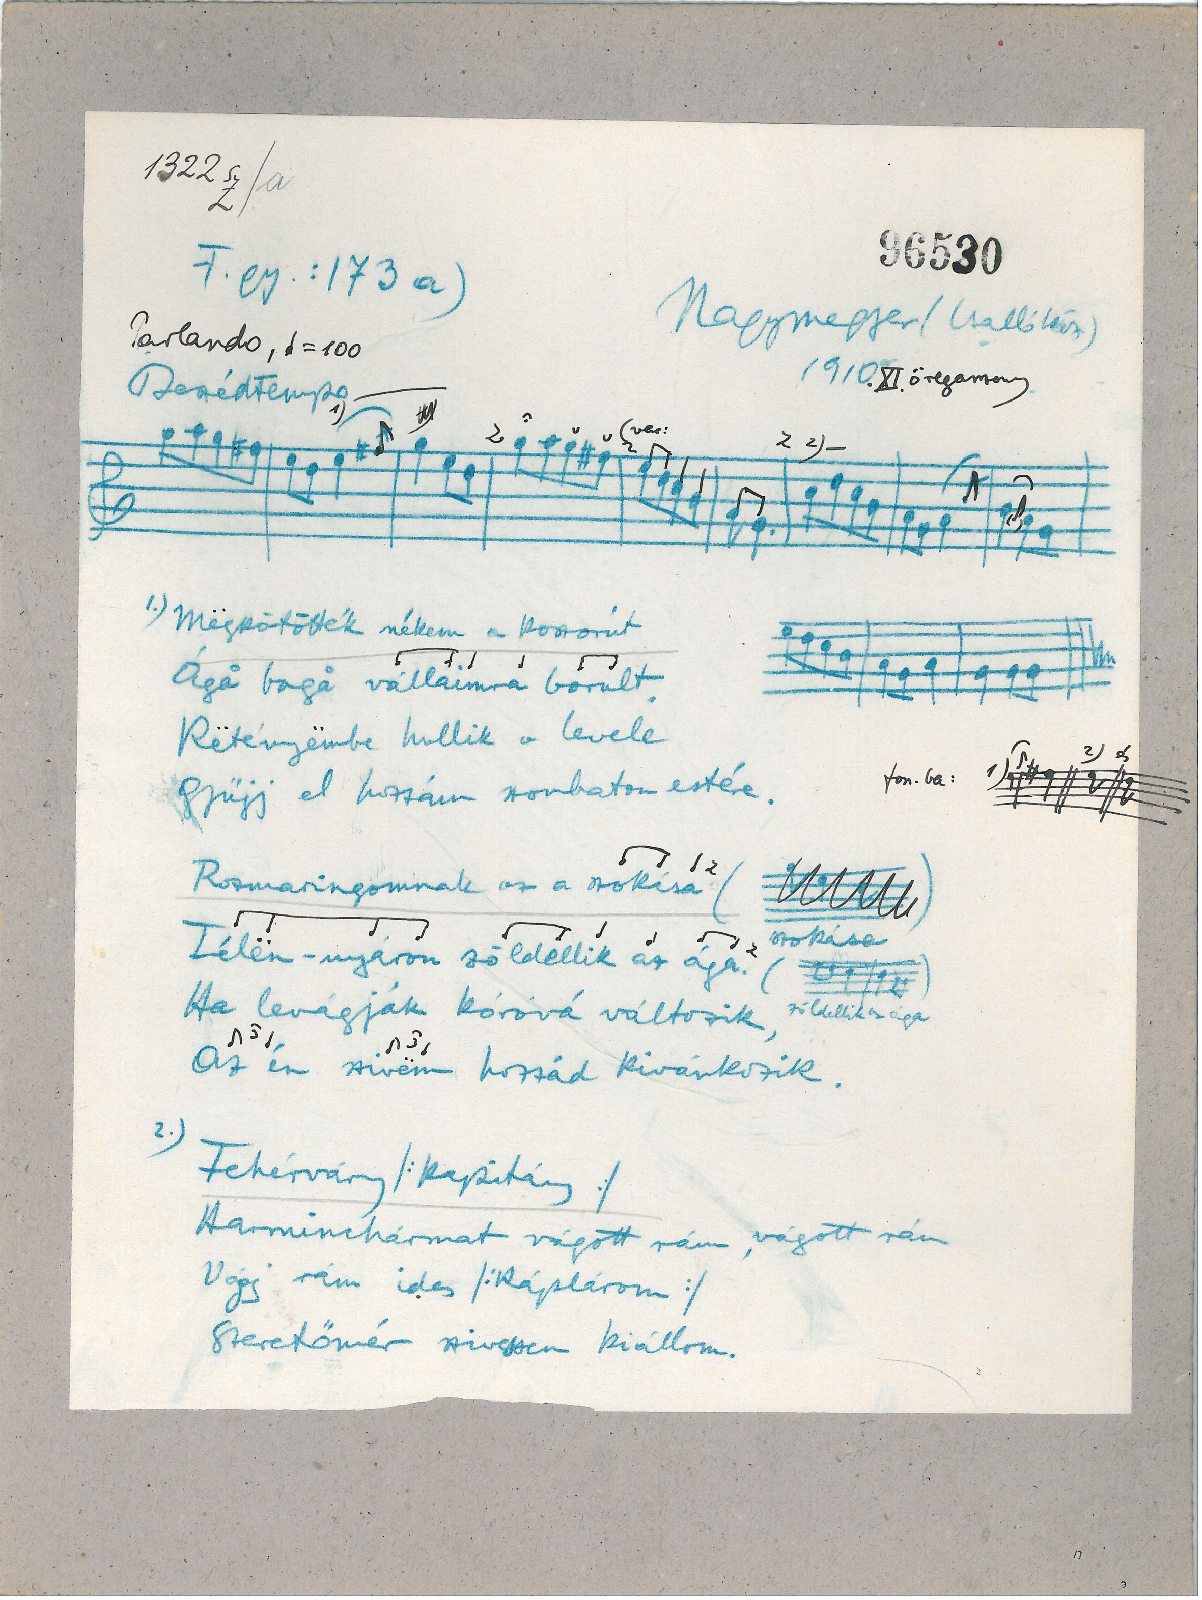 1322 sz/a
96530
F. gy.: 173 a)
Nagymegyer (Csallóköz)
Parlando, ♩=100
1910. XI. öregasszony
Beszédtempo
1)
(var:
2) –
1.) Mëgkötötték nékem a koszorút
Ágå bogå vállaimra borult.
Rëtényëmbe hullik a levele
Gyüjj el hozzám szombaton estére.
fon. ba: 1) 2)
Rozmaringomnak az a szokása (
szokása
Télën-nyáron zöldellik az ága. (
zöldellik az ága
Ha levágják kóróvá változik,
Az én szivëm hozzád kivánkozik.
2.)
Fehérváry /: kapitány :/
Harminchármat vágott rám, vágott rám
Vágj rám ides /: káplárom :/
Szeretőmér szivessen kiállom.